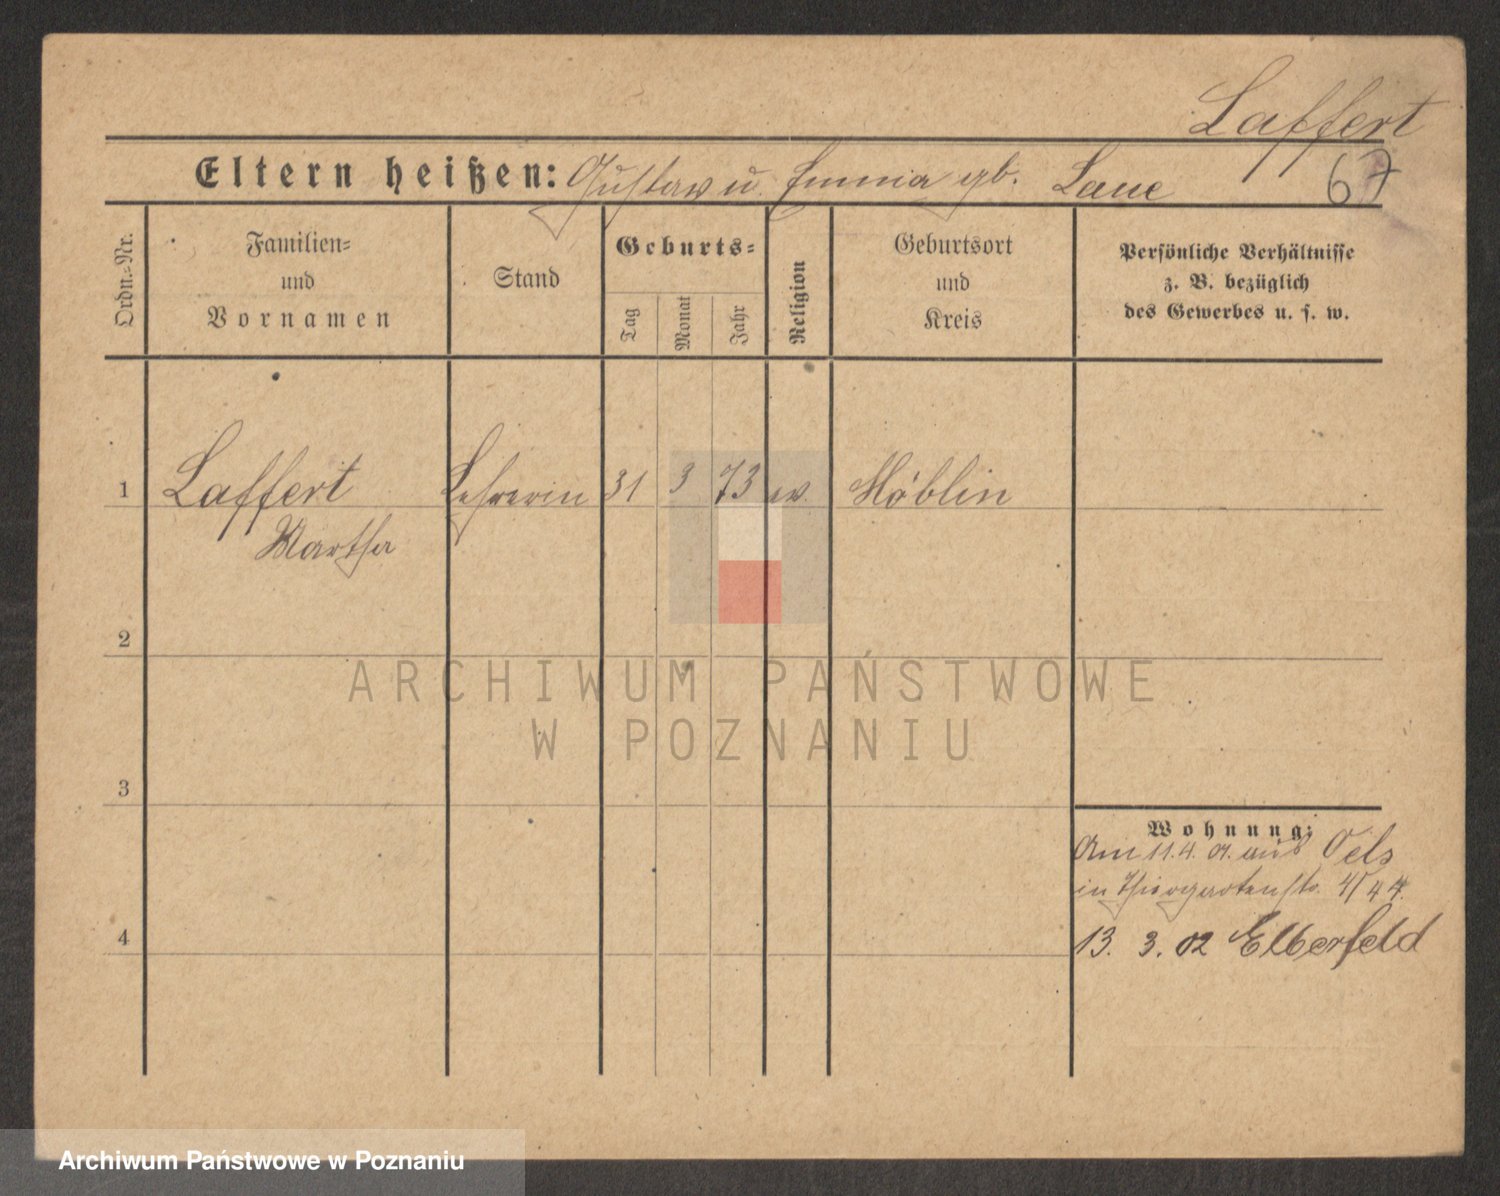 Laffert
Eltern heißen: Gustav u. Emma gb. Laue
67
Ordn.=Nr.
Familien=
und
Vornamen
Stand
Geburts=
Tag
Monat
Jahr
Religion
Geburtsort
und
Kreis
Persönliche Verhältnisse
z. B. bezüglich
des Gewerbes u. s. w.
1 Laffert Lehrerin 31 3 73 ev. Möblin
Martha
2
ARCHIWUM PAŃSTWOWE
W POZNANIU
3
Wohnung:
Am 11.4. 01. aus Oels
in Thiergartenstr. 4/
4
13. 3. 02 Elberfeld
Archiwum Państwowe w Poznaniu